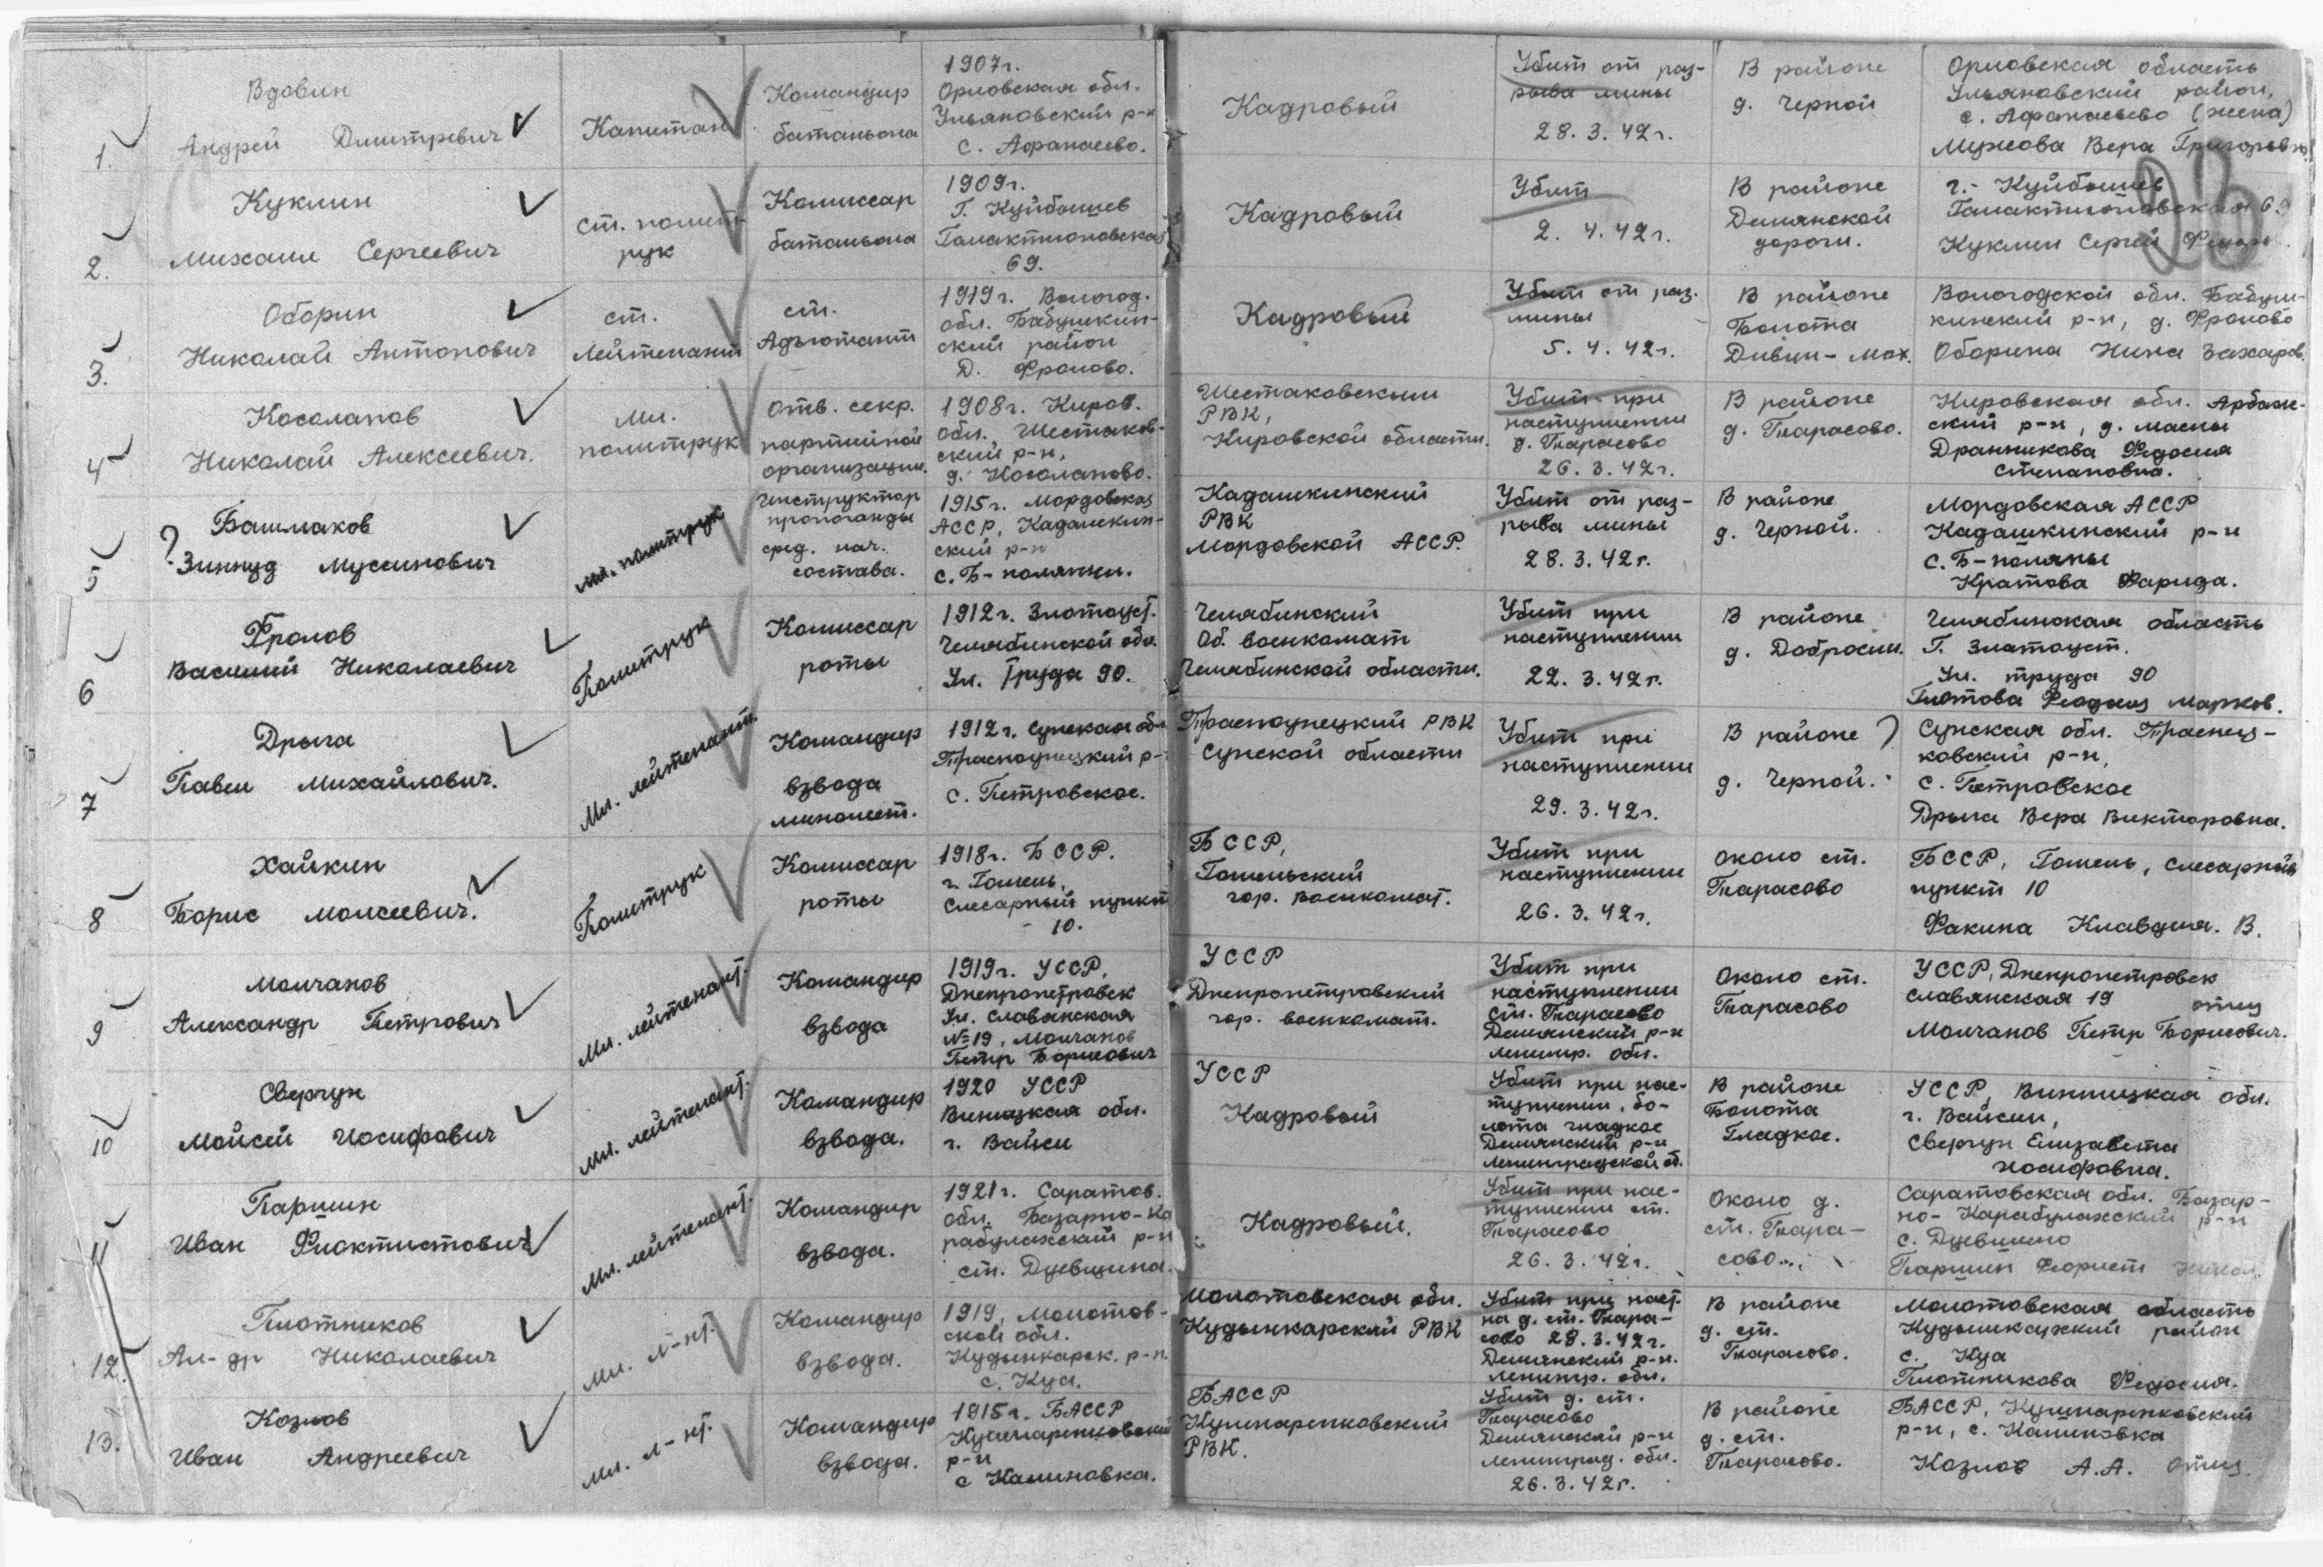 1.
Вдовин
Андрей Дмитревич
Капитан
Командир
батальона
1907г.
Орловская обл.
Ульяновский р-н
с. Афанасево.
Кадровый
Убит от раз-
рыва мины
28.3.42г.
В районе
д. Черной
Орловская область
Ульяновский район,
с. Афанасьево (жена)
Вера Григорьевна
2.
Куклин
Михаил Сергеевич
ст. полит-
рук
Комиссар
батальона
1909г.
Г. Куйбышев
Галактионовская
69.
Кадровый
Убит
2.4.42г.
В районе
Демянской
дороги.
г.- Куйбышев
Галактионовская 69
Куклин Сергей
3.
Оборин
Николай Антонович
ст.
Лейтенант
ст.
Адъютант
1919г. Вологод.
обл. Бабушкин-
ский район
Д. Фролово.
Кадровый
Убит от раз.
мины
5.4.42г.
В районе
Болота
Дивин-Мох.
Вологодской обл. Бабуш-
кинский р-н, д. Фролово
Оборина Нина Захаров.
4
Косолапов
Николай Алексеевич.
Мл.
политрук
Отв. секр.
партийной
организации.
1908г. Киров.
обл. Шестаков-
ский р-н,
д. Косолапово.
Шестаковским
РВК,
Кировской области.
Убит при
наступлении
д. Тарасово
26.3.42г.
В районе
д. Тарасово.
Кировская обл. Арбаж-
ский р-н, д. Маслы
Дранникова Федосия
Степановна.
5
?
Башмаков
Зиннуд Муссинович
мл. политрук
Инструктор
пропоганды
сред. нач.
состава.
1915г. Мордовская
АССР, Кадашкин-
ский р-н
с. Б-полянки.
Кадашкинский
РВК
Мордовской АССР.
Убит от раз-
рыва мины
28.3.42г.
В районе
д. Черной.
Мордовская АССР
Кадашкинский р-н
с. Б-поляны
Кратова Фарида.
6
Фролов
Василий Николаевич
Политрук
Комиссар
роты
1912г. Златоуст.
Челябинской обл.
Ул. Труда 90.
Челябинский
Об. военкомат
Челябинской области.
Убит при
наступлении
22.3.42г.
В районе
д. Добросли.
Челябинская область
Г. Златоуст.
Ул. труда 90
Марков.
7
Дрыга
Павел Михайлович.
Мл. лейтенант
Командир
взвода
миномет.
1912г. Сумская обл.
Краснопунецкий р-
с. Петровское.
Краснопунецкий РВК
Сумской области
Убит при
наступлении
29.3.42г.
В районе
д. Черной.
Сумская обл.
ковский р-н,
с. Петровское
Дрыга Вера Викторовна.
8
Хайкин
Борис Моисеевич.
Политрук
Комиссар
роты
1918г. БССР.
г. Гомель,
Слесарный пункт
10.
БССР,
Гомельский
гор. военкомат.
Убит при
наступлении
26.3.42г.
Около ст.
Тарасово
БССР, Гомель, слесарный
пункт 10
Факина Клавдия. В.
9
Молчанов
Александр Петрович
Мл. лейтенант.
Командир
взвода
1919г. УССР,
Днепропетровск
Ул. Славянская
№19, Молчанов
Петр Борисович
УССР
Днепропетровский
гор. военкомат.
Убит при
наступлении
ст. Тарасово
Демянский р-н
Ленингр. обл.
Около ст.
Тарасово
УССР, Днепропетровск
Славянская 19 отец
Молчанов Петр Борисович.
10
Сверчун
Мойсей Иосифович
Мл. лейтенант.
Командир
взвода.
1920 УССР
Виницкая обл.
г. Вайси
УССР
Кадровый
Убит при нас-
туплении, бо-
лота гладкое
Демянский р-н
Ленинградской об.
В районе
Болота
Гладкое.
УССР, Винницкая обл.
г. Вайсин,
Сверчун Елизавета
Иосифовна.
11
Паршин
Иван Фиоктистович
Мл. лейтенант.
Командир
взвода.
1921г. Саратов.
обл. Базарно-Ка
рабулакский р-н
ст. Дуевщина.
Кадровый.
Убит при нас-
туплении ст.
Тарасово
26.3.42г.
Около д.
ст. Тара-
сово..
Саратовская обл. Базар-
но-Карабулакский р-н
с. Дуевщино
Паршин
12.
Плотников
Ал-др Николаевич
Мл. л-нт.
Командир
взвода.
1919, Молотов-
ской обл.
Кудынкарск. р-н
с. Куа.
Молотовская обл.
Кудынкарский РВК
Убит при наст.
на д. ст. Тара-
сово 28.3.42г.
Демянский р-н.
Ленингр. обл.
В районе
д. ст.
Тарасово.
Молотовская область
район
с. Куа
Плотникова Федосия.
13.
Козлов
Иван Андреевич
Мл. л-нт.
Командир
взвода.
1915г. БАССР
Кушнаренковский
р-н
с Калиновка.
БАССР
Кушнаренковский
РВК.
Убит д. ст.
Тарасово
Демянский р-н
Ленинград. обл.
26.3.42г.
В районе
д. ст.
Тарасово.
БАССР, Кушнаренковский
р-н, с. Калиновка
Козлов А.А. отец.